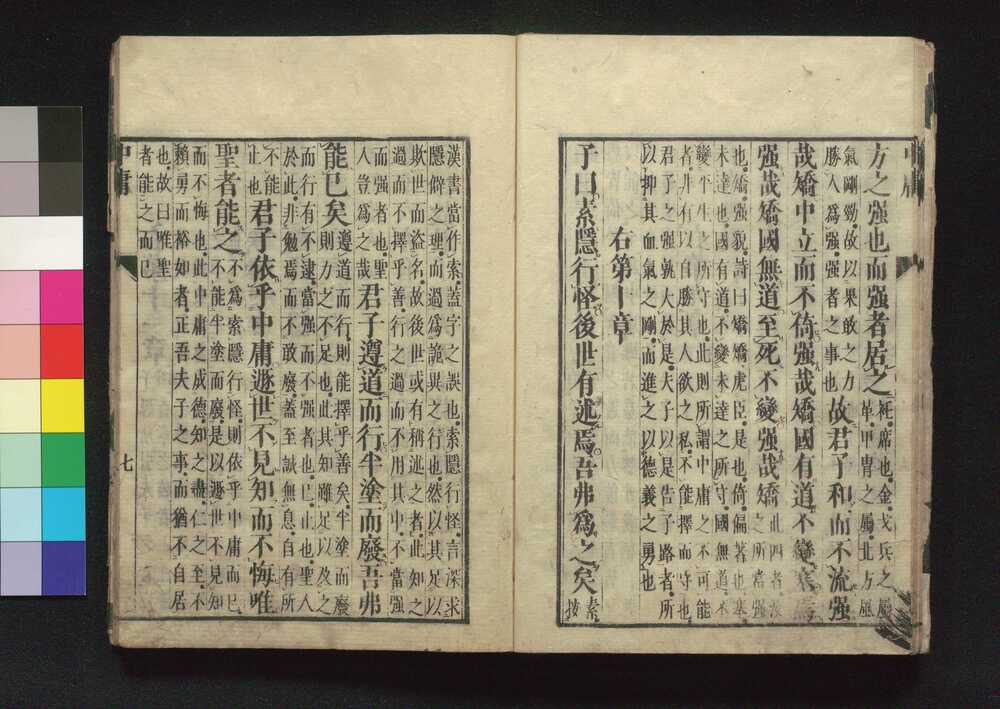 方之强也而强者居之
衽席也金戈兵之屬
革甲冑之屬北方風
氣剛勁故以果敢之力
勝人爲强强者之事也
故君子和而不流强
哉矯中立而不倚强哉矯國有道不變塞焉
强哉矯國無道至死不變强哉矯
此四者汝
之所當强
也矯强貌詩曰矯矯虎臣是也倚偏著也塞
未達也國有道不變未達之所守國無道不
變平生之所守也此則所謂中庸之不可能
者非有以自勝其人欲之私不能擇而守也
君子之强孰大於是夫子以是告子路者所
以抑其血氣之剛而進之以德義之勇也
右第十章
子曰素隱行怪後世有述焉吾弗爲之矣
素
按
漢書當作索蓋字之誤也索隱行怪言深求
隱僻之理而過爲詭異之行也然以其足以
欺世而盜名故後世或有稱述之者此知之
過而不擇乎善行之過而不用其中不當强
而强者也聖
人豈爲之哉
君子遵道而行半塗而廢吾弗
能已矣
遵道而行則能擇乎善矣半塗而廢
則力之不足也此其知雖足以及之
而行有不逮當强而不强者也已止也聖人
於此非勉焉而不敢廢蓋至誠無息自有所
不能
止也
君子依乎中庸遯世不見知而不悔唯
聖者能之
不爲索隱行怪則依乎中庸而已
不能半塗而廢是以遯世不見知
而不悔也此中庸之成德知之盡仁之至不
賴勇而裕如者正吾夫子之事而猶不自居
也故曰唯聖
者能之而已
中庸
七